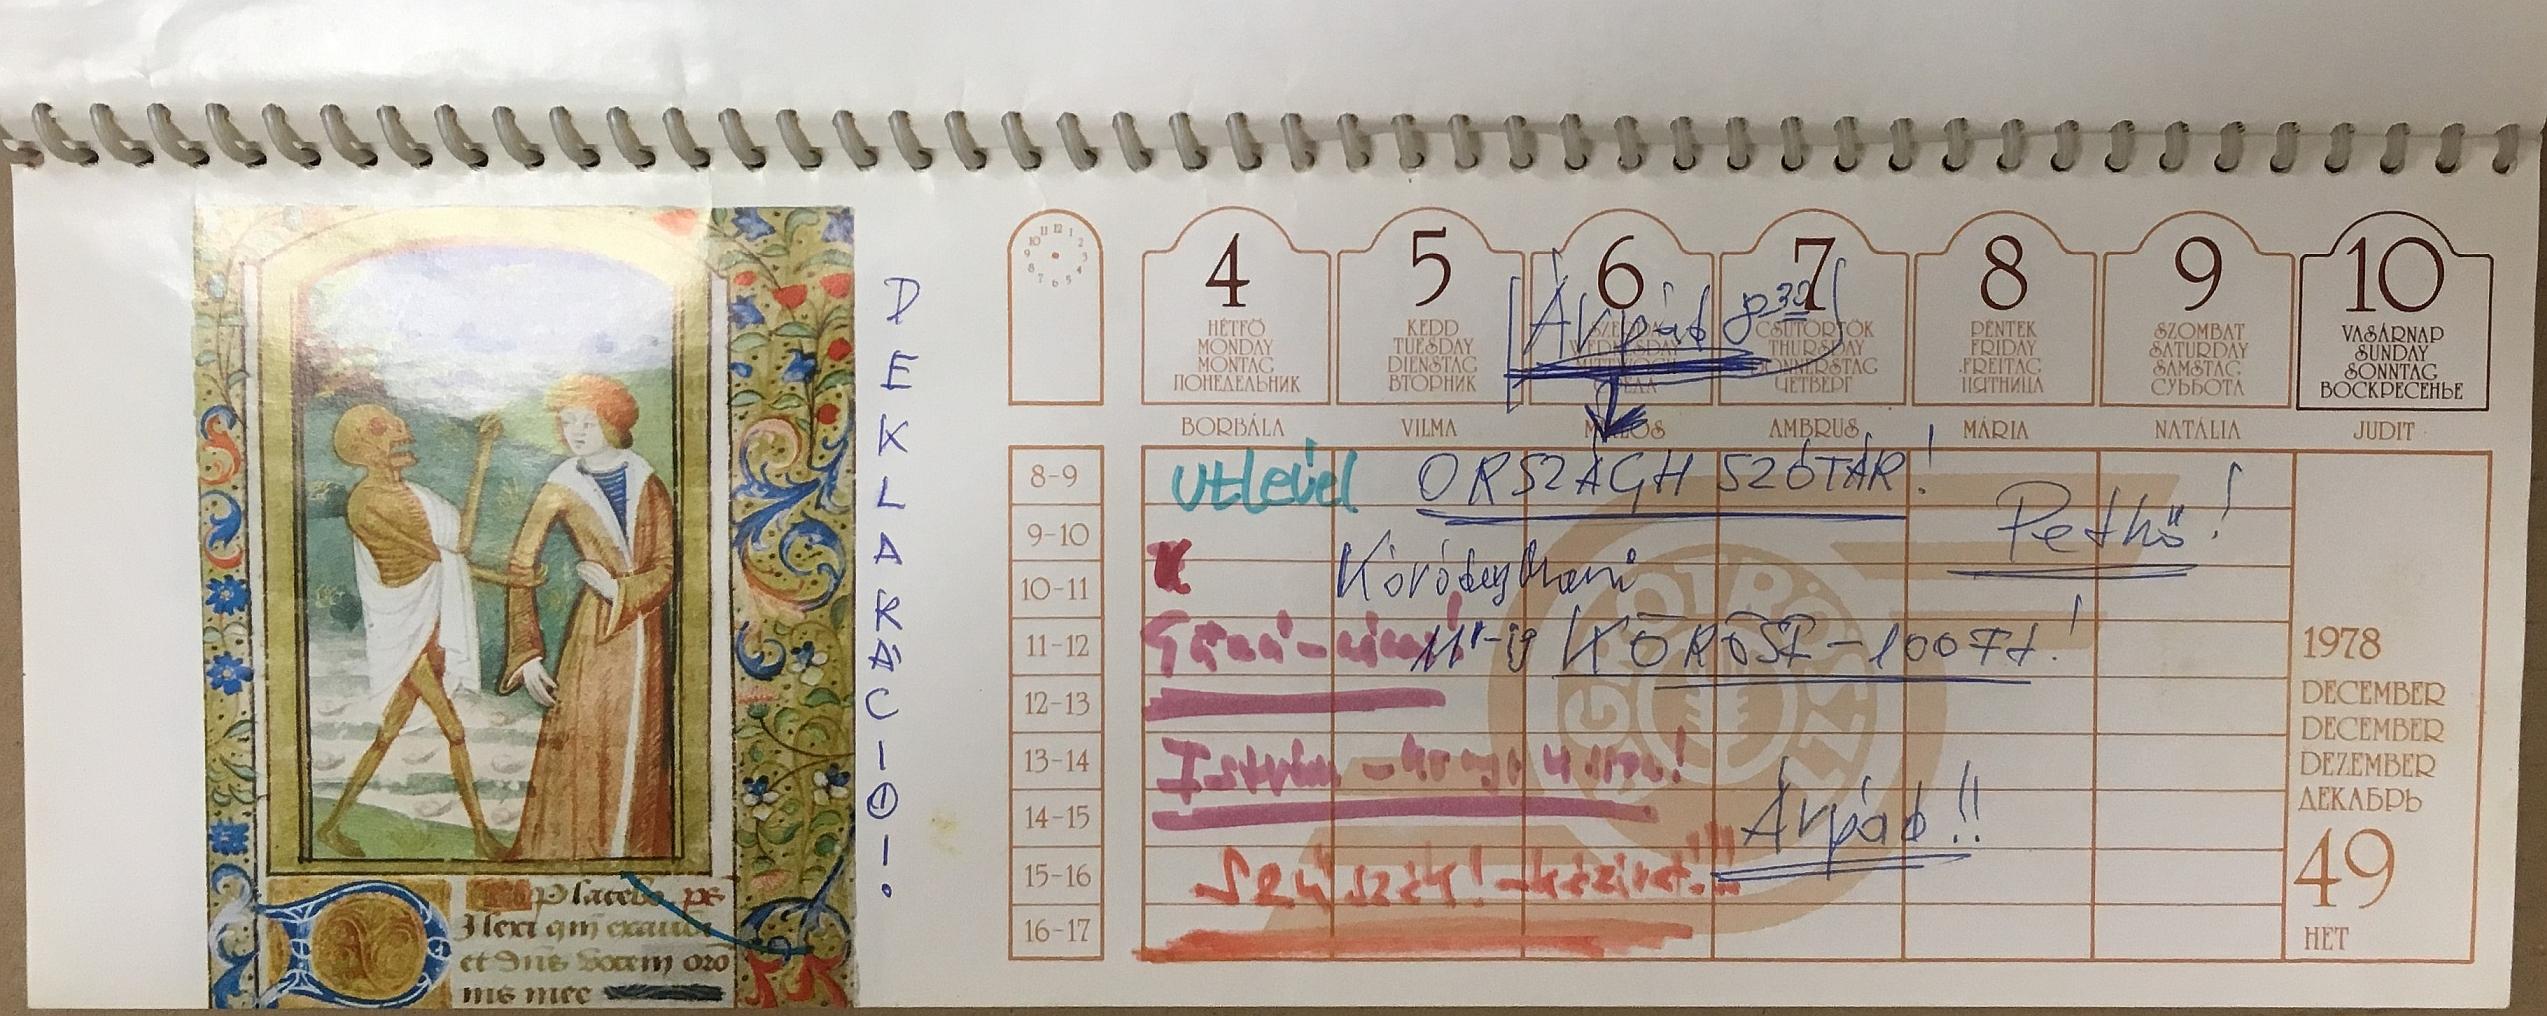 DEKLARÁCIÓI.
Placebo
et dñs vocem oro
nis mee
12 1 2 3 4 5 6 7 8 9 10 11
4 5 6 7 8 9 10
HÉTFŐ KEDD CSÜTÖRTÖK PÉNTEK SZOMBAT VASÁRNAP
MONDAY TUESDAY WEDNESDAY THURSDAY FRIDAY SATURDAY SUNDAY
MONTAG DIENSTAG MITTWOCH DONNERSTAG FREITAG SAMSTAG SONNTAG
ПОНЕДЕЛЬНИК ВТОРНИК СРЕДА ЧЕТВЕРГ ПЯТНИЦА СУББОТА ВОСКРЕСЕНЬЕ
Árpád 8³⁰
BORBÁLA VILMA MIKLÓS AMBRUS MÁRIA NATÁLIA JUDIT
8-9 útlevél ORSZÁGH SZÓTÁR!
Pethő!
9-10
10-11
11-12 11-ig KŐRÖSI - 100 Ft.!
12-13
13-14 István -
14-15 Árpád!!
15-16 - kézirat!!!
16-17
1978
DECEMBER
DECEMBER
DEZEMBER
ДЕКАБРЬ
49
HÉT